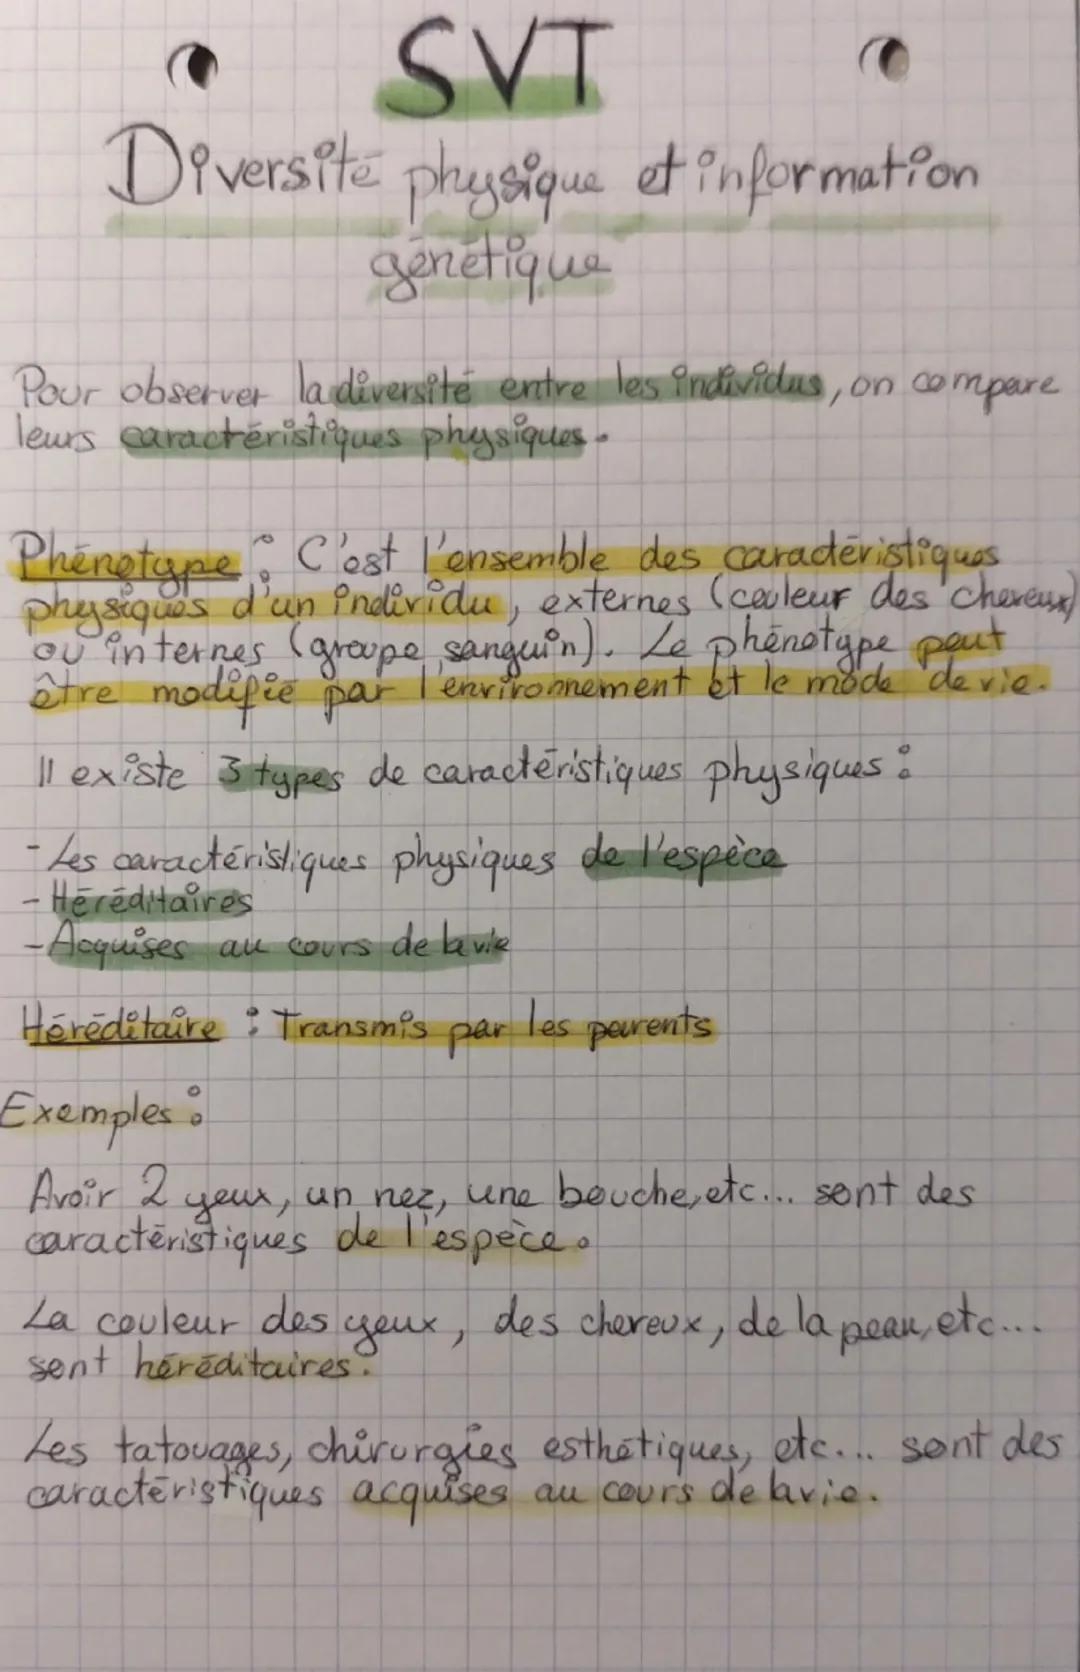 SVT
Diversité physique et information
génétique
Pour observer la diversité entre les individus, on compare
leurs caractéristiques physiques.
Phénotype : C'est l'ensemble des caractéristiques
physiques d'un individu, externes (couleur des cheveux)
ou internes (groupe sanguin). Le phénotype peut
être modifié par l'environnement et le mode de vie.
Il existe 3 types de caractéristiques physiques :
- Les caractéristiques physiques de l'espèce
- Héréditaires
- Acquises au cours de la vie
Héréditaire : Transmis par les parents
Exemples :
Avoir 2 yeux, un nez, une bouche, etc... sont des
caractéristiques de l'espèce.
La couleur des yeux, des cheveux, de la peau, etc...
sont héréditaires.
Les tatouages, chirurgies esthétiques, etc... sont des
caractéristiques acquises au cours de la vie.